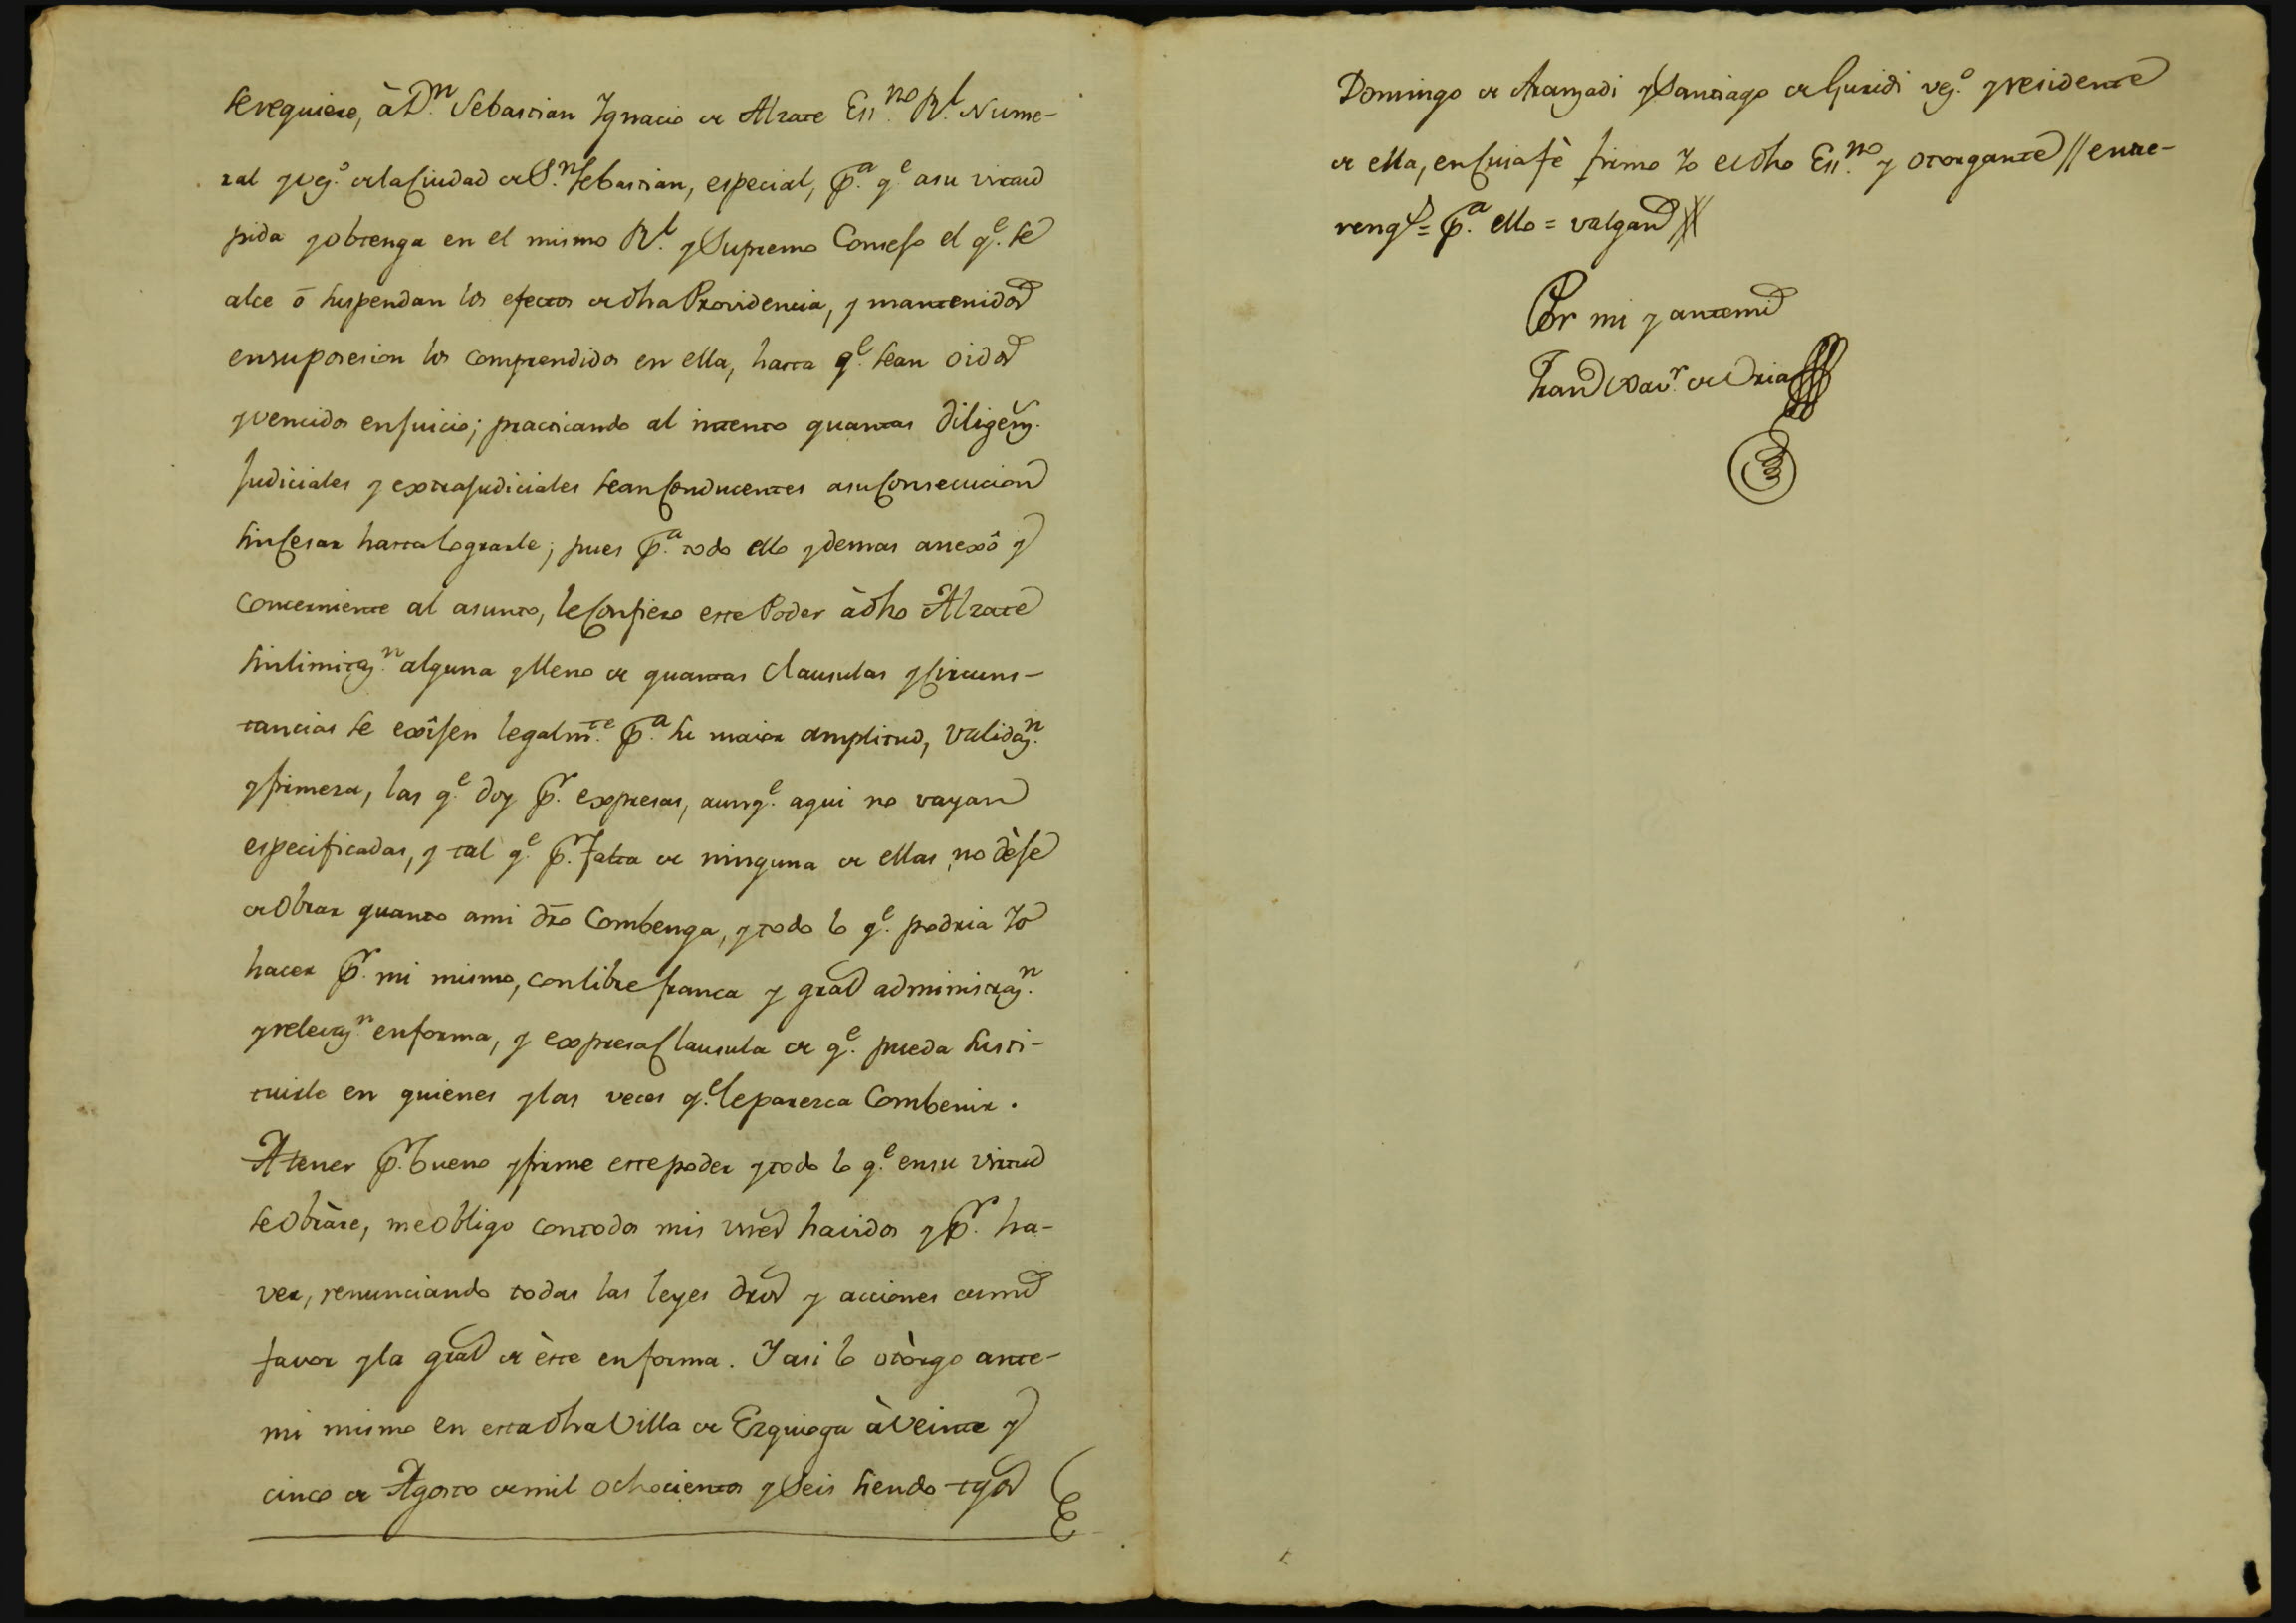 se requiere, à Dn. Sebastian Ygnacio de Alzate Essno. Rl. Nume-
ral y vezo. de la Ciudad de Sn. Sebastian, especial, pa. qe. a su virtud
pida y obtenga en el mismo Rl. y Supremo Consejo el qe. se
alce ó suspendan los efectos de dha Providencia, y mantenidos
en su posesion los comprendidos en ella, hasta qe. sean oidos
y vencidos en juicio; practicando al intento quantas diligenz.
judiciales y extrajudiciales sean Conducentes a su Consecucion
sin Cesar hasta lograrle; pues pa. todo ello y demas anexô y
concerniente al asunto, le Confiero este Poder à dho Alzate
sin limitazn. alguna y lleno de quantas Clausulas y Circuns-
tancias se exîjen legalmte. pa. su maior amplitud, validazn.
y firmeza, las qe. doy pr. expresas, aunqe. aqui no vayan
especificadas, y tal qe. pr. falta de ninguna de ellas, no dèje
de Obrar quanto a mi dro Combenga, y todo lo qe. podria Yo
hacer pr. mi mismo, con libre franca y gral administrazn.
y relevazn. en forma, y expresa Clausula de qe. pueda susti-
tuirle en quienes y las veces qe. le parezca Combenir.
A tener pr. bueno y firme este poder y todo lo qe. en su virtud
se Obràre, me Obligo con todos mis vnes havidos y pr. ha-
ver, renunciando todas las leyes dros y acciones de mi
favor y la gral de èste en forma. Y asi lo otòrgo ante-
mi mismo en esta dha Villa de Ezquioga à Veinte y
cinco de Agosto de mil ochocientos y Seis siendo tgos
Domingo de Aranzadi y Santiago de Guridi vezo. y residente
de ella, en Cuia fè firmo Yo el dho Essno. y otorgante // entre-
rengs = pa. ello = valgan
Por mi y ante mi
Fran Xavr. de Oria